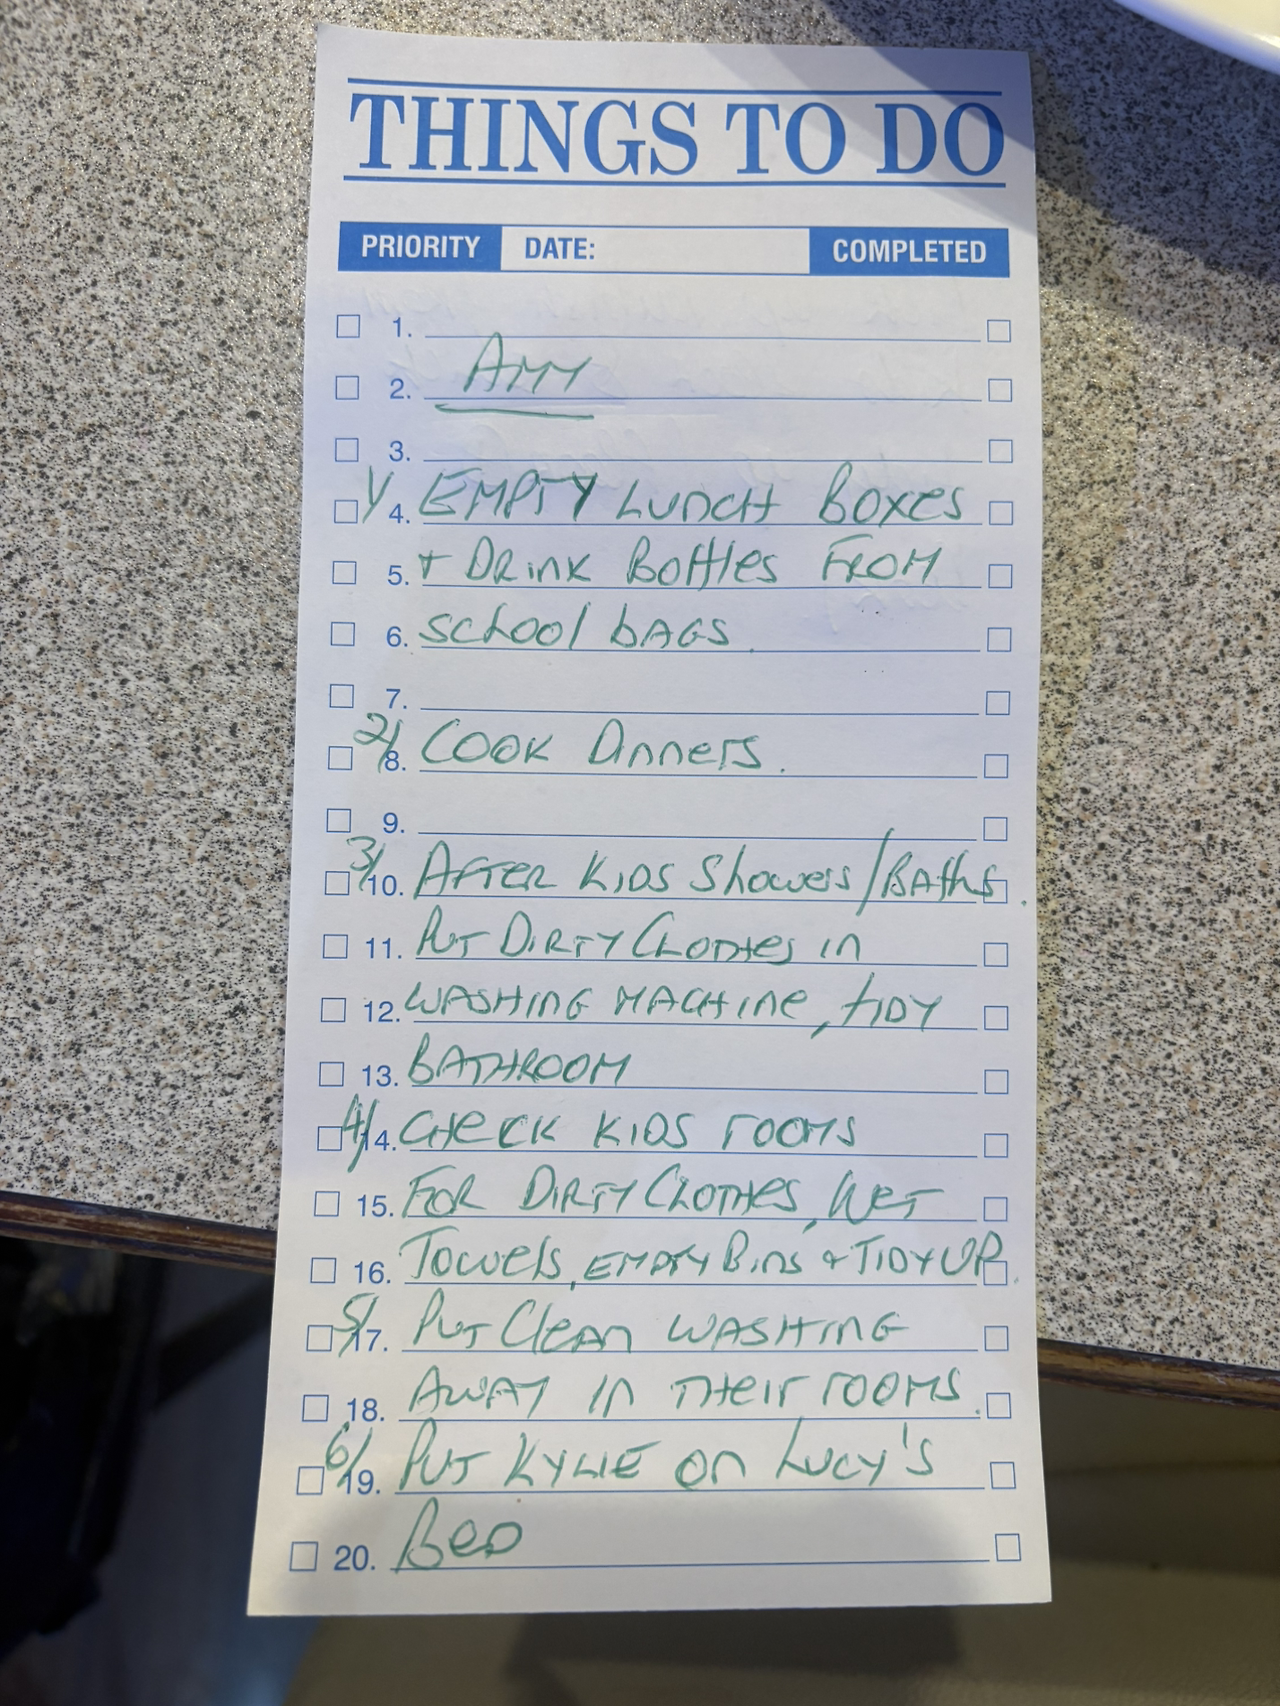 THINGS TO DO
PRIORITY DATE: COMPLETED
1.
2. AMY
3.
1/ 4. EMPTY LUNCH BOXES
5. + DRINK BOTTLES FROM
6. SCHOOL BAGS
7.
2/ 8. COOK Dinners.
9.
3/ 10. AFTER KIDS Showers/BATHS.
11. PUT DIRTY CLOTHES in
12. WASHING MACHINE, TIDY
13. BATHROOM
4/ 14. CHECK KIDS rooms
15. FOR DIRTY CLOTHES, WET
16. Towels, EMPTY Bins + TIDY UP.
5/ 17. PUT Clean WASHING
18. AWAY IN THEIR rooms.
6/ 19. PUT KYLIE on Lucy's
20. Bed